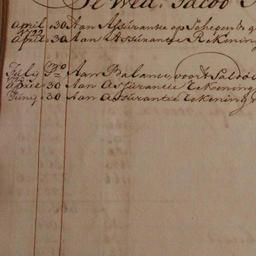 De Wed. Jacob
April 30 Aan Assurantie op Scheepen
April 30 Aan Assurantie Rekening
July Aan Balance, voort Saldo
April 30 Aan Assurantie Rekening
Juny 30 Aan Assurantie Rekening